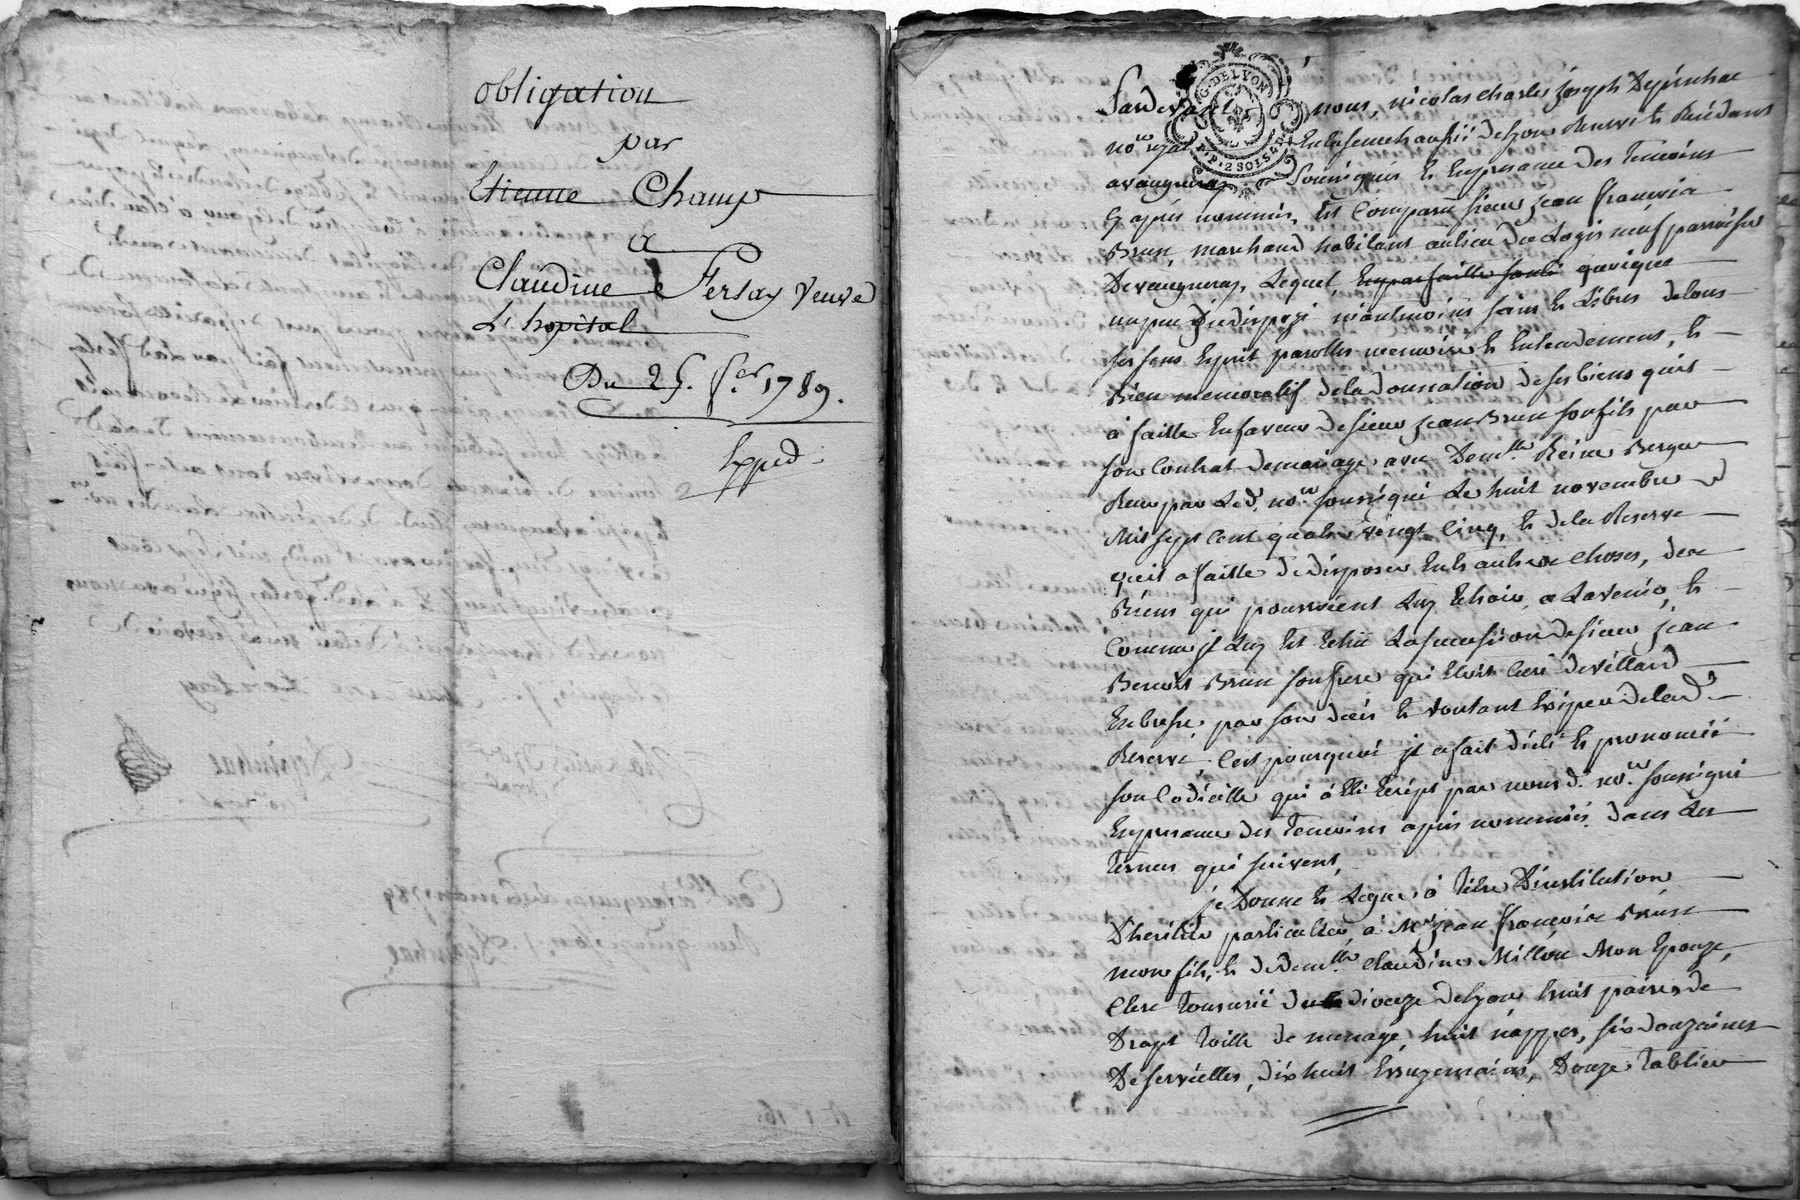 obligation
par
Etienne Champ
a
Claudine Ferlay veuve
L'hopital
Du 25. f.er 1789.
Exped
G. DE LYON
P.P. 2 SOLS 4 D
Pardevant nous, nicolas charles joseph Depinhac
no.re royal En la senechaussée de Lyon Reservé Et Résidant
a vaugneray Soussigné Et En presence des Temoins
Cy après nommés, Est Comparu sieur jean françois
Brun, marchand habitant au lieu du Logis neuf parroisse
De vaugneray, Lequel, quoique
un peu indisposé néantmoins sain Et Libres de tous
ses sens Esprit parolles memoire Et Entendement, Et
Bien memoratif de la donnation de ses biens qu'il
à faitte En faveur de sieur jean Brun son fils par
son Contrat de mariage avec Dem.lle Reine Berger
Reçu par Led. no.re soussigné Le huit novembre
Mil sept Cent quatre vingt Cinq, Et de la Reserve
qu'il a faitte de disposer Entre autres choses, des
Biens qui pourroient Luy Echoir a Lavenir, Et
Comme jl Luy Est Echu La succession de sieur jean
Benoit Brun son frere qui Etoit Curé de villard
En bresse, par son décès Et voulant Disposer de lad.
Reserve, C'est pourquoi jl a fait dicté Et prononcé
son Codicille qui à Eté Ecript par nous d. no.re soussigné
En presence des Temoins après nommés dans Les
Termes qui suivent,
je Donne Et Legue à titre D'institution
D'heritier particulier, à M.r jean françois Brun
mon fils, Et de dem.lle Claudine Millon Mon Epouze,
Clerc Tonsuré du dioceze de Lyon huit paires de
Drapt Toille de menage, huit nappes, six douzaines
De serviettes, dix huit Essuyemains, Douze Tablier